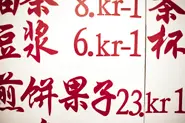 油条 8.kr-1 茶
豆浆 6.kr-1 杯
煎饼果子 23.kr 1